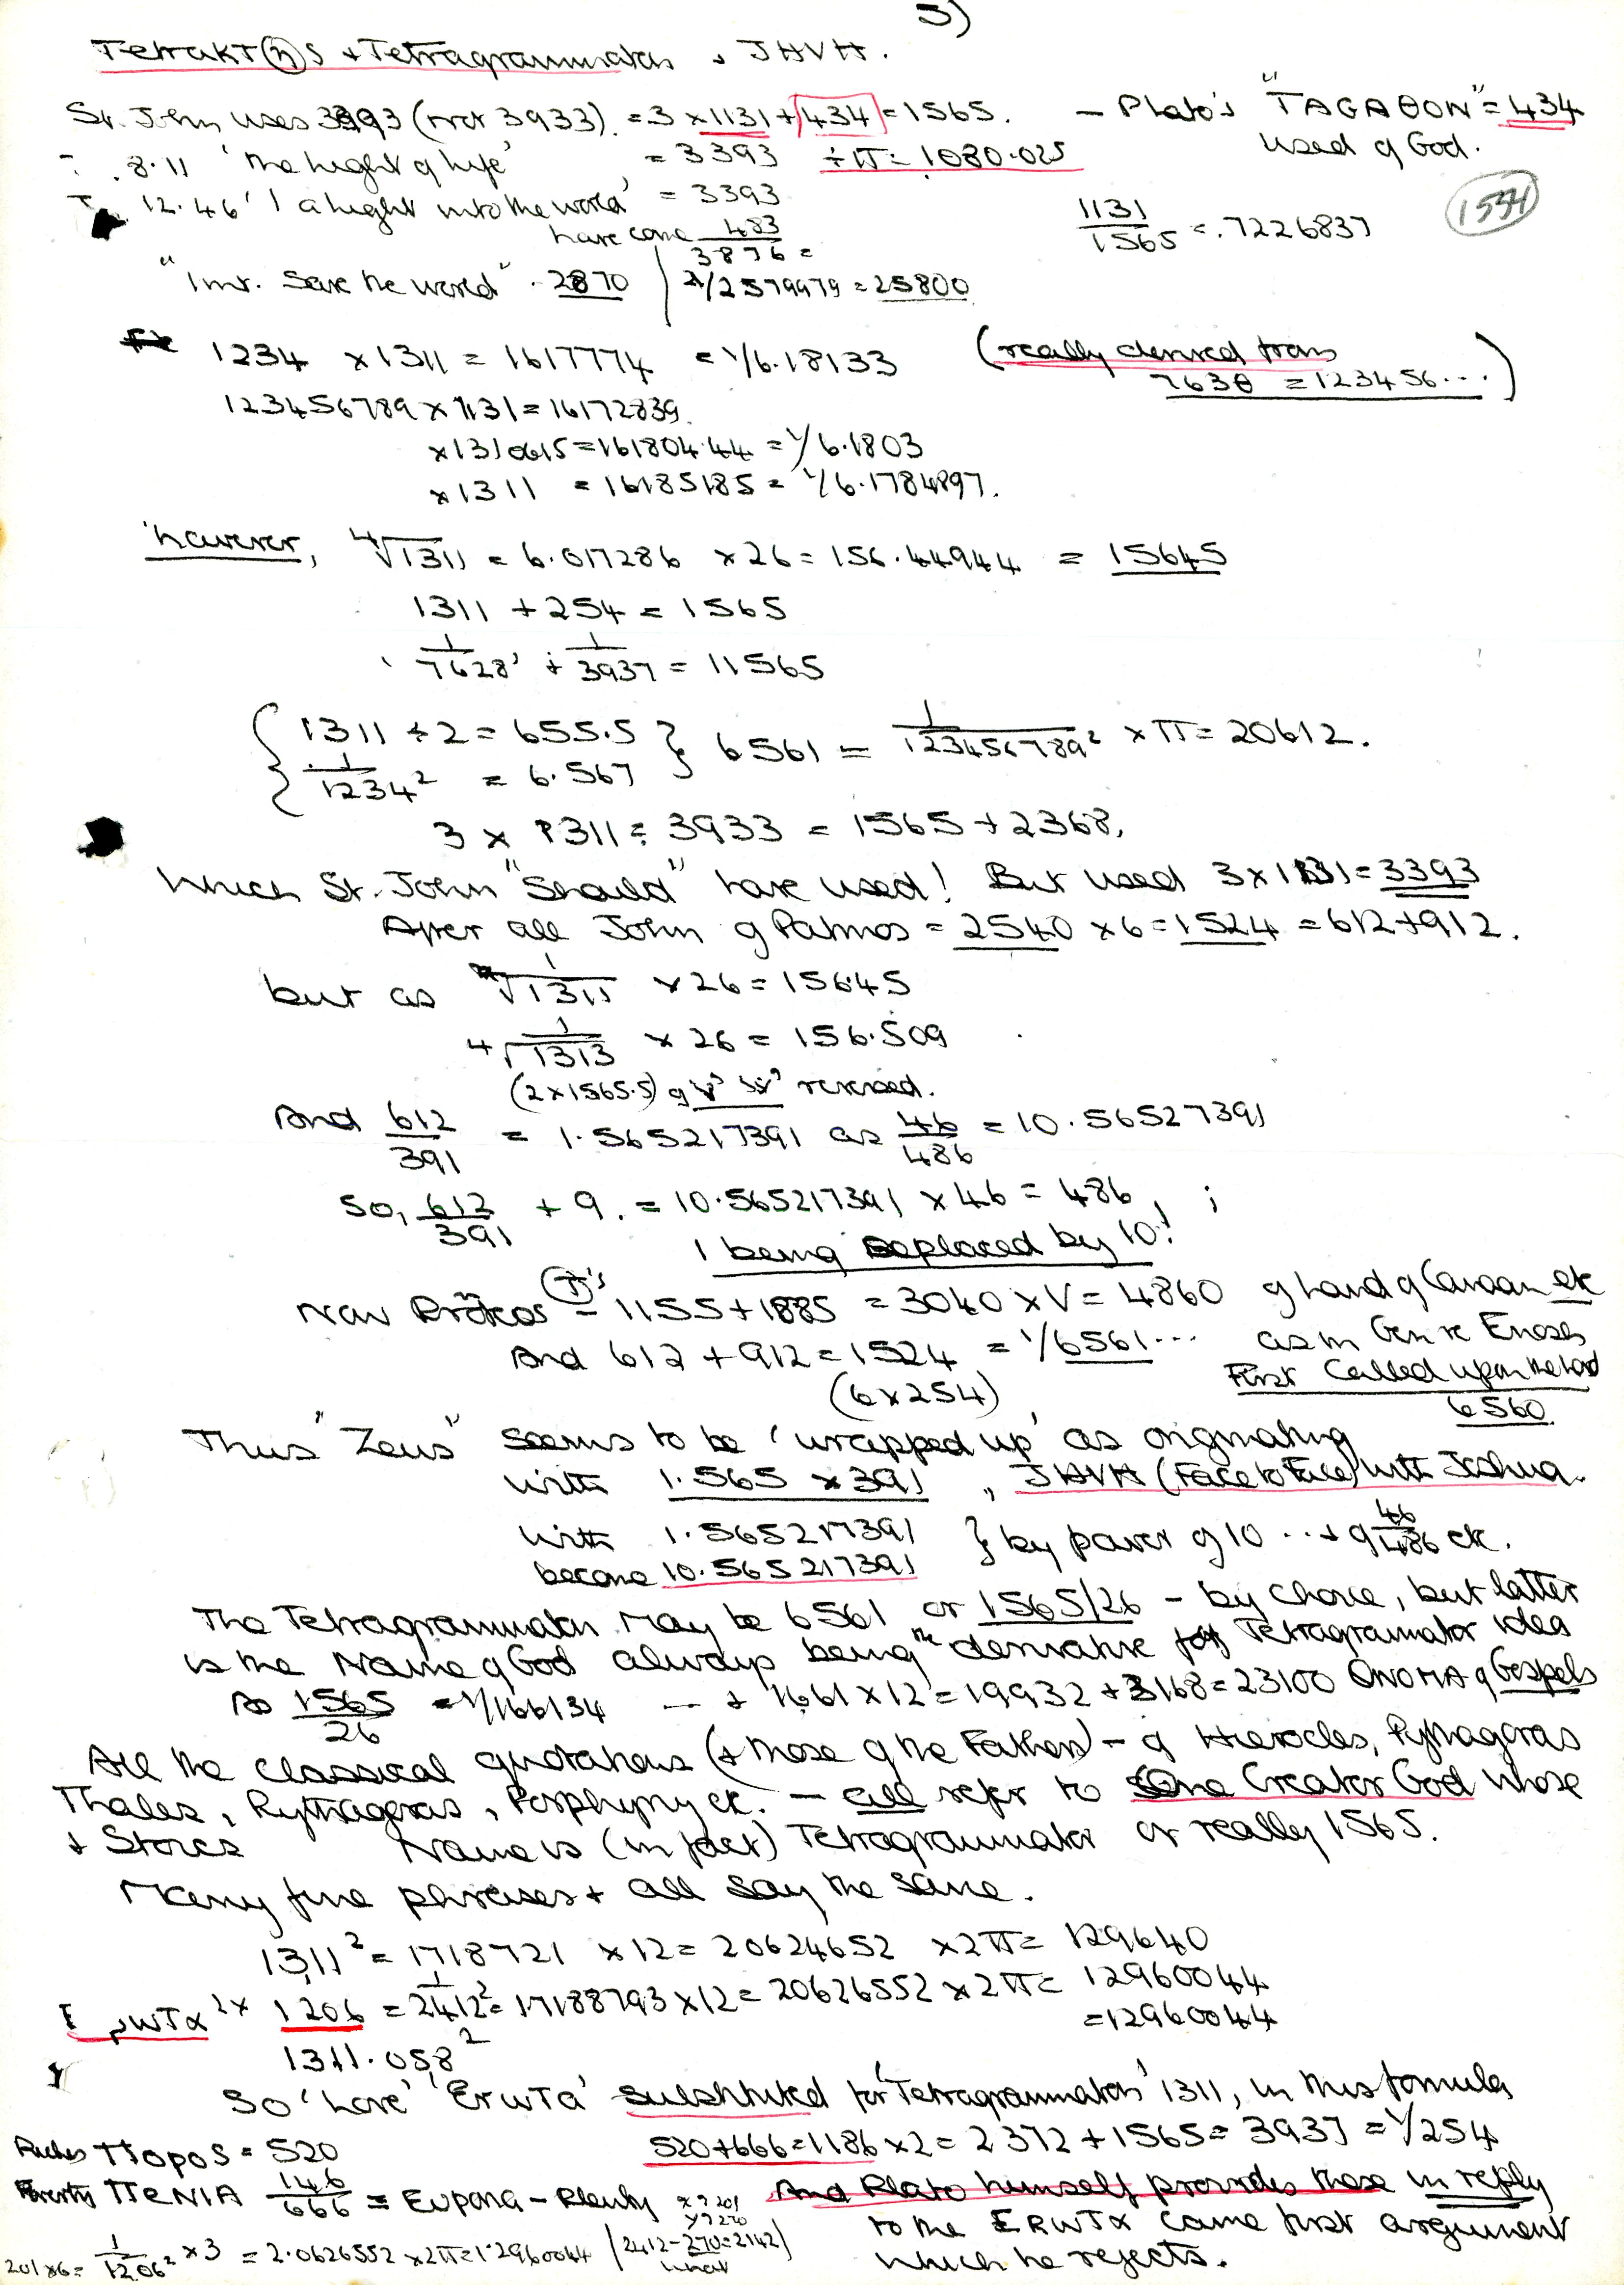 3)
Tetrakt(η)s + Tetragrammaton + JHVH.
St. John uses 3393 (not 3933) = 3 × 1131 + 434 = 1565. — Plato's "TAGAθON" = 434
8.11 'the Light of Life' = 3393 ÷ π = 1080.025 used of God.
12.46 'I a Light into the world' = 3393
have come 483
3876 =
1131/1565 = .7226837
1534
"I mt. Save the world" · 2870 / 2579979 = 25800
1234 × 1311 = 1617774 = 1/6.18133 (really derived from
7638 = 123456...)
123456789 × 1131 = 16172839.
×1310615 = 161804.44 = 1/6.1803
×1311 = 16185185 = 1/6.1784897.
however, ∜1311 = 6.017286 × 26 = 156.44944 = 15645
1311 + 254 = 1565
'1/7628' + 1/3937 = 11565
{ 1311 ÷ 2 = 655.5 } 6561 = 1/123456789² × π = 20612.
{ 1/1234² = 6.567 }
3 × 1311 = 3933 = 1565 + 2368,
Which St. John "Should" have used! But used 3 × 1131 = 3393
After all John of Patmos = 2540 × 6 = 1524 = 612 + 912.
but as √1/1311 × 26 = 15645
4√1/1313 × 26 = 156.509
(2 × 1565.5) of reversed.
And 612/391 = 1.565217391 as 46/486 = 10.56527391
So, 612/391 + 9. = 10.565217391 × 46 = 486, ;
1 being replaced by 10!
Now 1155 + 1885 = 3040 × V = 4860 of Land of Canaan etc
And 612 + 912 = 1524 = 1/6561... as in Gen re Enosh
(6 × 254) First Called upon the Lord
6560
Thus "Zeus" seems to be 'wrapped up' as originating
with 1.565 × 391, JHVH (Face to Face) with Joshua.
with 1.565217391 } by power of 10 ... + 9 46/486 etc.
become 10.565217391
The Tetragrammaton may be 6561 or 1565/26 - by choice, but latter
is the Name of God always being the derivative for Tetragrammaton idea
As 1565/26 = 1/166134 — + 1661 × 12 = 19932 + 3168 = 23100 ONOMA of Gospels
All the classical quotations (+ those of the Fathers) - of Hierocles, Pythagoras
Thales, Pythagoras, Porphyry etc. - all refer to One Creator God whose
+ Stoics Name is (in fact) Tetragrammaton or really 1565.
Many fine phrases + all say the same.
1311² = 1718721 × 12 = 20624652 × 2π = 129640
ErwTα 2× 1206 = 1/2412² = 17188793 × 12 = 20626552 × 2π = 12960044
= 12960044
1311.058²
So 'Love' 'ErwTα' substituted for 'Tetragrammaton' 1311, in this formula
Πopos = 520 520 + 666 = 1186 × 2 = 2372 + 1565 = 3937 = 1/254
Poverty ΠeNIA 146
666 = Eupora - Plenty And Plato himself provides these in reply
to the ErwTα came first argument
which he rejects.
201 × 6 = 1/1206² × 3 = 2.0626552 × 2π = 1.2960044 / 2412 - 270 = 2142